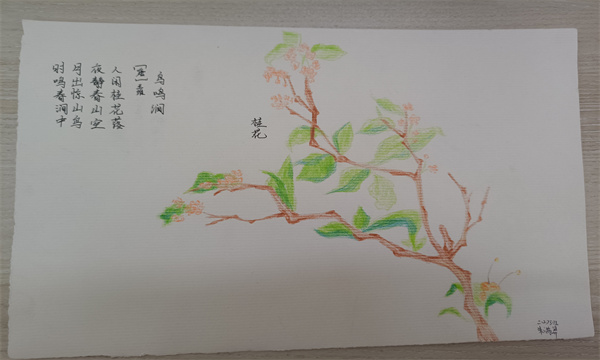 鸟鸣涧
人闲桂花落
夜静春山空
月出惊山鸟
时鸣春涧中
桂花